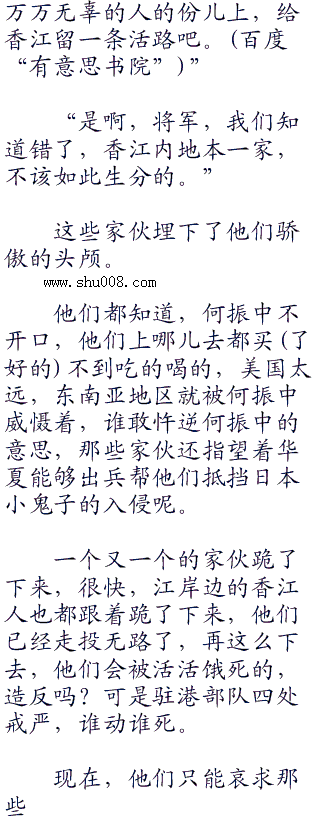 万万无辜的人的份儿上，给
香江留一条活路吧。(百度
“有意思书院”)”
“是啊，将军，我们知
道错了，香江内地本一家，
不该如此生分的。”
这些家伙埋下了他们骄
傲的头颅。
www.shu008.com
他们都知道，何振中不
开口，他们上哪儿去都买(了
好的)不到吃的喝的，美国太
远，东南亚地区就被何振中
威慑着，谁敢忤逆何振中的
意思，那些家伙还指望着华
夏能够出兵帮他们抵挡日本
小鬼子的入侵呢。
一个又一个的家伙跪了
下来，很快，江岸边的香江
人也都跟着跪了下来，他们
已经走投无路了，再这么下
去，他们会被活活饿死的，
造反吗？可是驻港部队四处
戒严，谁动谁死。
现在，他们只能哀求那
些